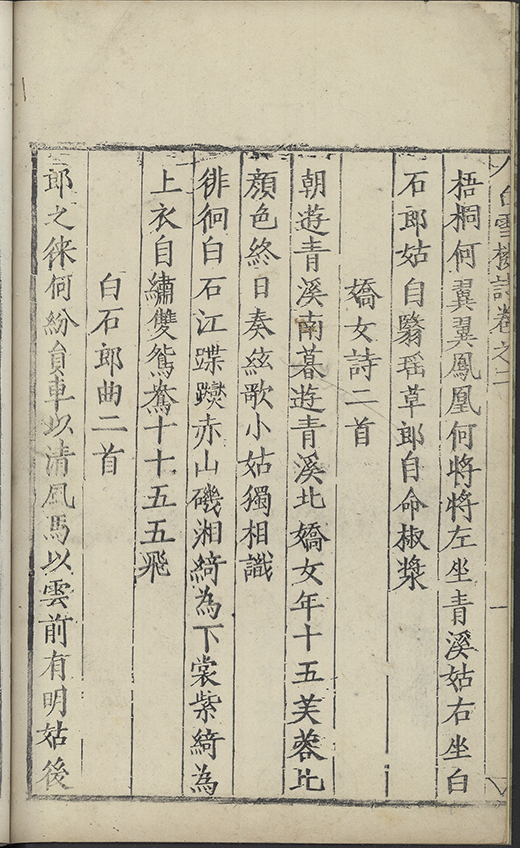 白雪樓詩卷之二
梧桐何翼翼鳳凰何將將左坐青溪姑右坐白
石郎姑自翳瑶草郎自命椒漿
嬌女詩二首
朝遊青溪南暮遊青溪北嬌女年十五芙蓉比
顔色終日奏絃歌小姑獨相識
徘徊白石江蹀躞赤山磯湘綺為下裳紫綺為
上衣自繡雙鴛鴦十十五五飛
白石郎曲二首
郎之徠何紛員車以清風馬以雲前有明姑後